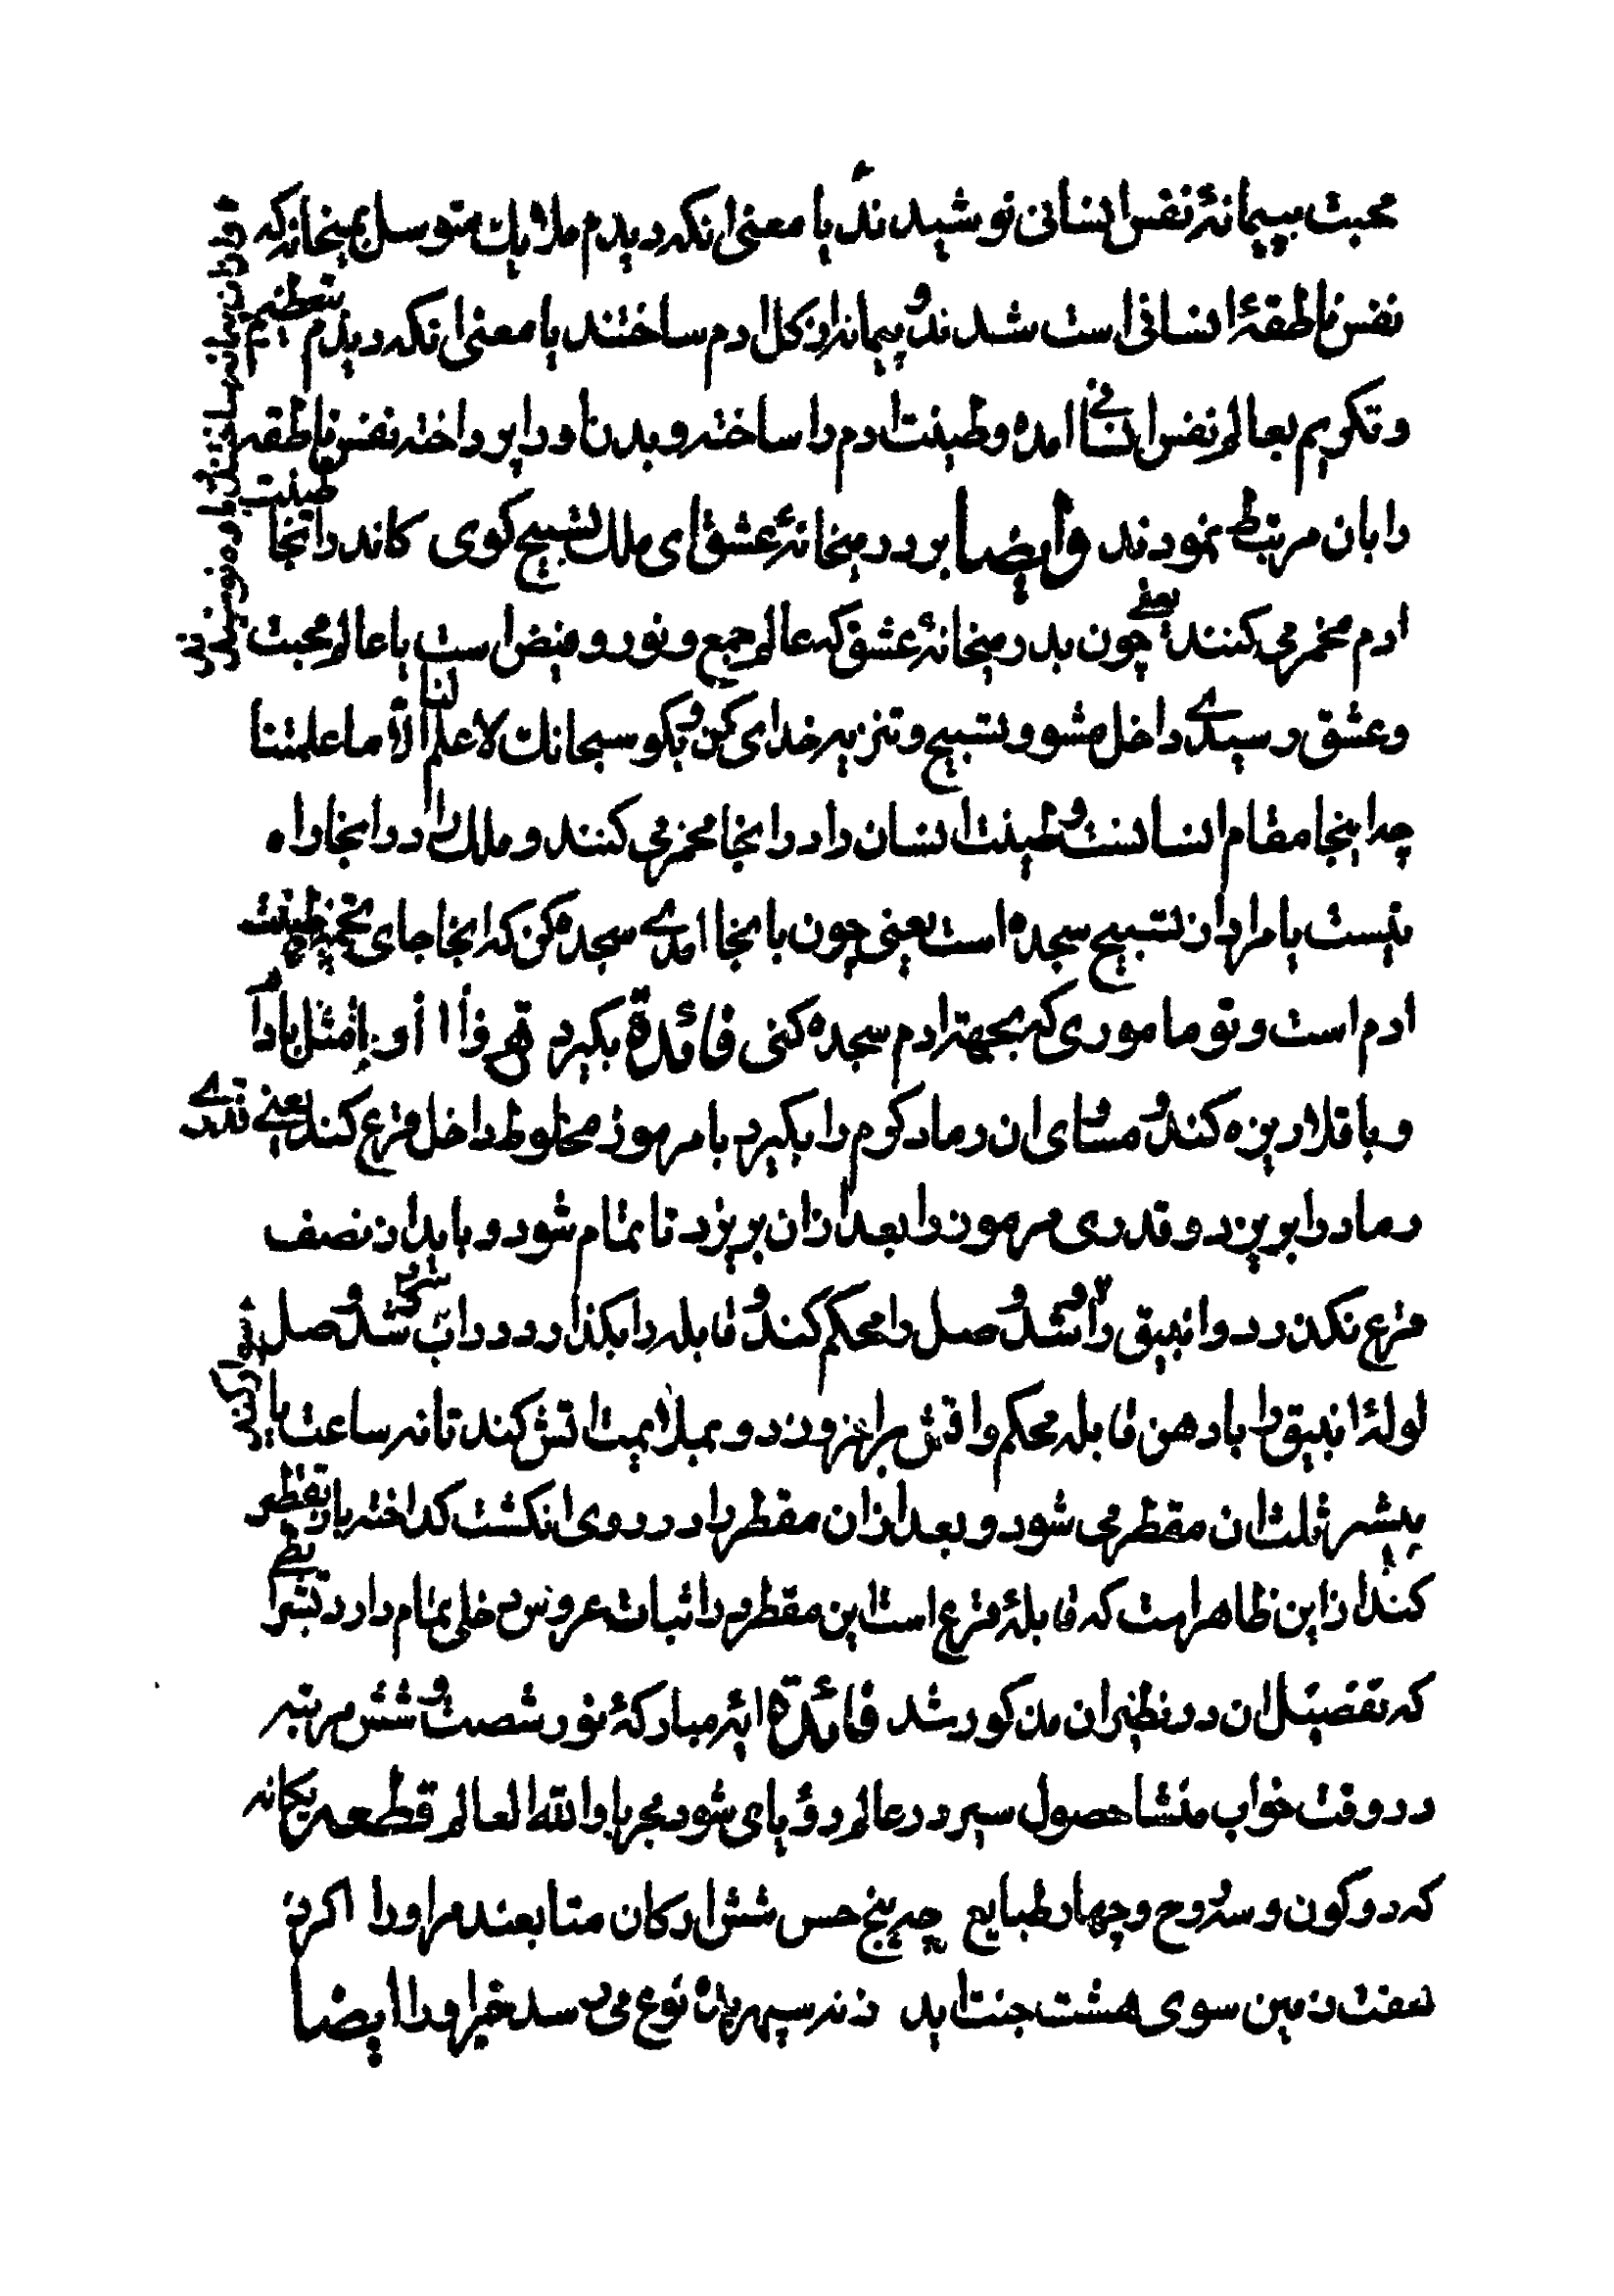 محبت بپیمانهٔ نفس انسانی نوشیدند یا معنی انکه دیدم ملایك متوسل بمیخانه که
نفس ناطقهٔ انسانی است شدند و پیمانه از کل ادم ساختند یا معنی انکه دیدم بتعظیم
و تکریم بعالم نفس انسانی امده و طینت ادم را ساخته و بدن او را پرداخته نفس ناطقه
را بان مرتبط نمودند وایضا بر در میخانهٔ عشق ای ملك تسبیح کوی کاندر انجا طینت
ادم مخمر می کنند یعنی چون بدر میخانهٔ عشق که عالم جمع و نور و فیض است یا عالم محبت
و عشق رسیدی داخل مشو و تسبیح و تنزیه خدای کن و بکو سبحانك لا علم لنا الّا ما علمتنا
چه اینجا مقام انسانست و طینت انسان را در اینجا مخمر می کنند و ملك را در اینجا راه
نیست یا مراد از تسبیح سجده است یعنی چون باینجا امدی سجده کن که اینجا جای تخمیر طینت
ادم است و تو ماموری که بجهة ادم سجده کنی فائدة بکیرد
و باقلا ریزه کند و مساوی ان رماد کرم را بکیرد با مرهون مخلوط داخل قرع کند یعنی قدری
رماد را بریزد و قدری مرهون را بعد از ان بریزد تا تمام شود و باید از نصف
قرع نکذرد و انبیق را و صل را محکم کند و قابله را بکذارد در اب سرد و صل
لولهٔ انبیق را با دهن قابله محکم و اتش برافروزد و بملایمت اتش کند تا نه ساعت یا
بیشتر ثلث ان مقطر می شود و بعد از ان مقطر را در روی انکشت کداخته باز تقطیر
کند از این ظاهر است که قابلهٔ قرع است این مقطر در اثبات عروس دخلی تمام دارد
که تفضیل ان در نظیر ان مذکور شد فائدة ایهٔ مبارکهٔ نور شصت و شش مرتبه
در وقت خواب منشا حصول سیر در عالم رؤیای شود مجربا والله العالم قطعه یکانه
که دو کون و سه روح و چهار طبایع چه پنج حس شش ارکان متابعند مر او را اکر ز
هفت زمین سوی هشت جنت اید ز نه سپهر بده نوع می رسد خبر او را ایضا